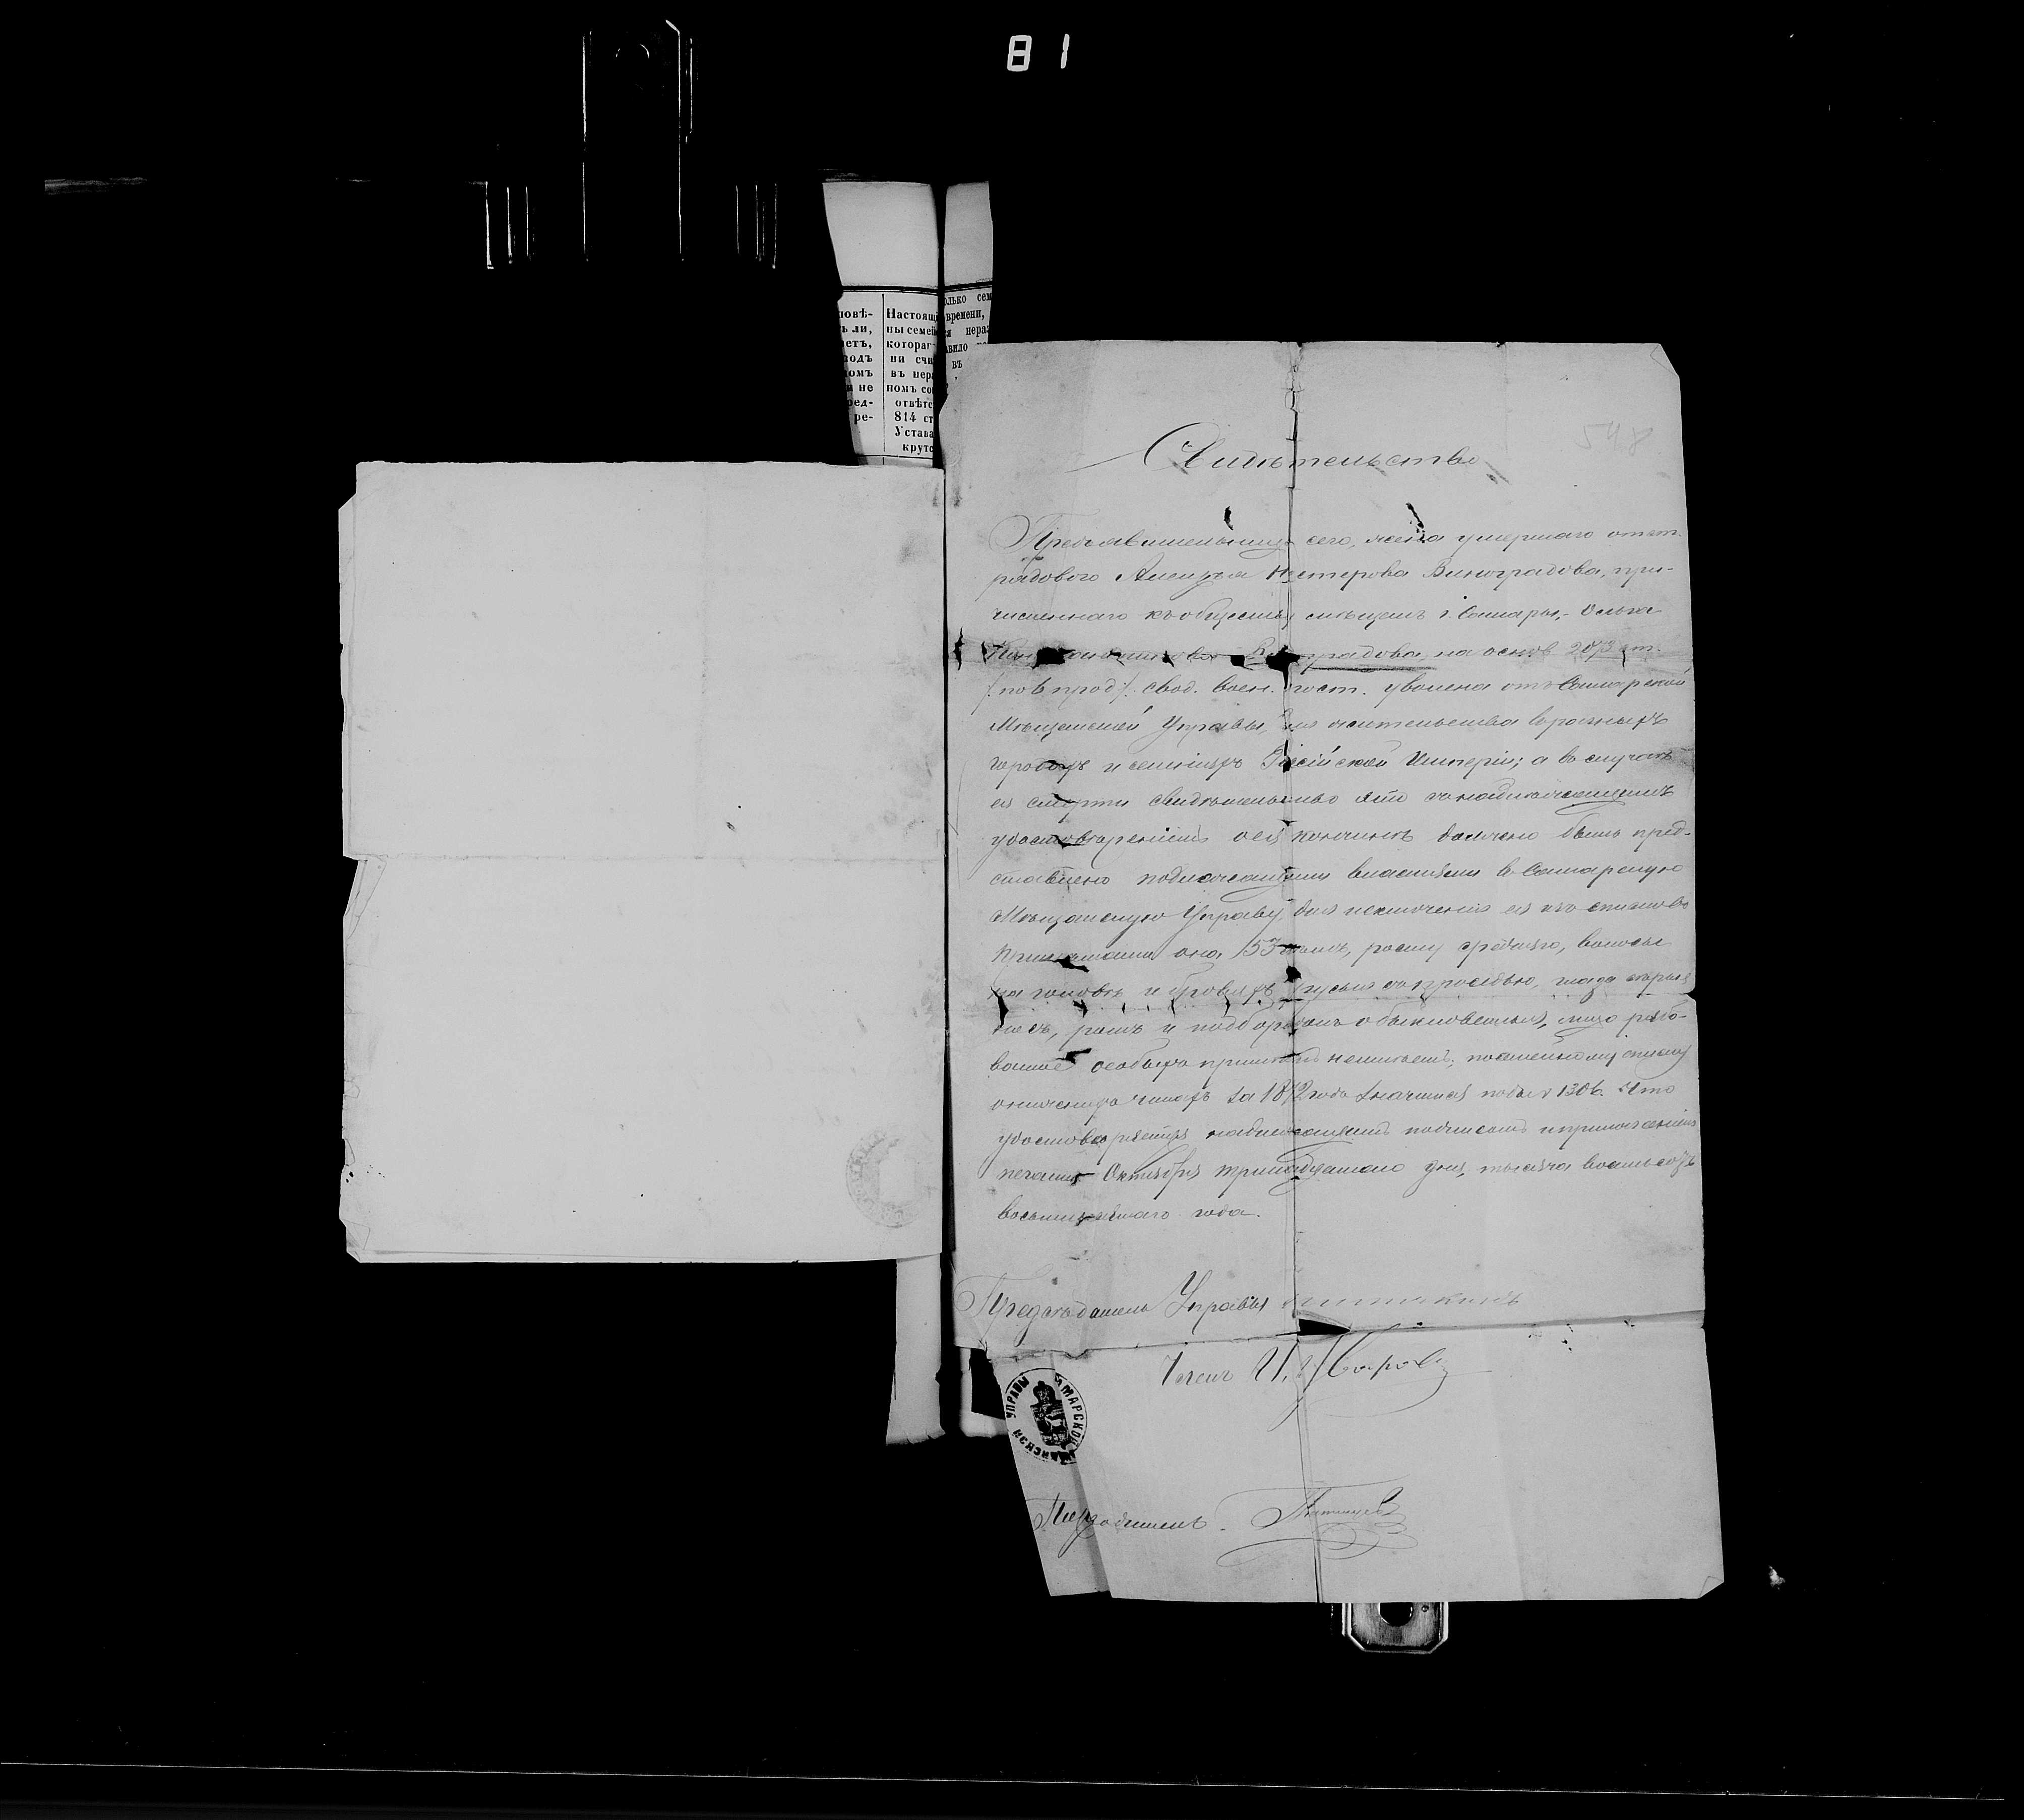 81
повѣ-
ь ли,
летъ,
подъ
омъ
и не
ред-
ре-
Настоящ
ны семей
котораг
ни счи
въ нера
номъ со
отвѣтс
814 ст
Устава
крутс
олько сем
времени,
ся нераз
авило
въ
548
Свидѣтельство
Предъявительница сего, жена умершаго отст.
рядоваго Алексѣя Нестерова Виноградова, при-
численнаго къ обществу мѣщанъ г. Самары, Ольга
Виноградова, на основ. ст.
/по 6 прод./ свод. воен. пост. уволена отъ Самарской
Мѣщанской Управы, для жительства въ разныхъ
городахъ и селеніяхъ Россійской Имперіи; а въ случаѣ
ея смерти свидѣтельство это за надлежащимъ
удостовѣреніемъ о ея кончинѣ должно быть пред-
ставлено подлежащими властями въ Самарскую
Мѣщанскую Управу, для исключенія ея изъ списковъ
Примѣтами она 53 лѣтъ, росту средняго, волосы
на головѣ и бровяхъ русыя съ просѣдью, глаза сѣрые
носъ, ротъ и подбородокъ обыкновенные, лицо рябо-
ватое особыхъ примѣтъ не имѣетъ; по списку
нижнихъ чиновъ за 1872 годъ значится подъ № 1306. Что
удостовѣряется надлежащимъ подписомъ и приложеніемъ
печати Октября тринадцатаго дня, тысяча восемьсотъ
восьмидесятаго года.
Предсѣдатель Управы
Членъ И.
САМАРСКОЙ МѢЩАНСКОЙ УПРАВЫ